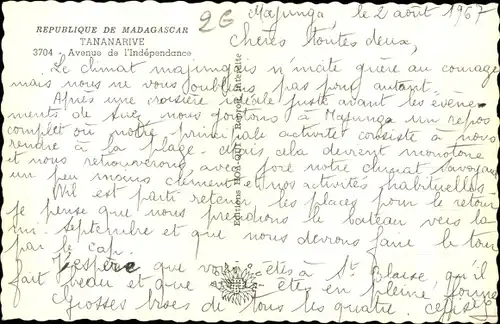 2G
Majunga, le 2 août 1967
REPUBLIQUE DE MADAGASCAR
TANANARIVE
3704 - Avenue de l'Indépendance
Chères toutes deux,
Le climat majungais n'incite guère au courage
mais nous ne vous oublions pas pour autant.
Après une croisière idéale juste avant les évène-
ments de Suez, nous goûtons à Majunga un repos
complet où notre principale activité consiste à nous
rendre à la plage. Mais cela devient monotone
et nous retrouverons avec joie notre climat savoyard
un peu moins clément et nos activités habituelles.
est parti retenir les places pour le retour
Je pense que nous prendrons le bateau vers la
fin Septembre et que nous devrons faire le tour
par le cap.
J'espère que vous êtes à St Blaise, qu'il
fait beau et que êtes en pleine forme
Grosses bises de nous les quatre.
Editions HOA-QUI - Reproduction Interdite